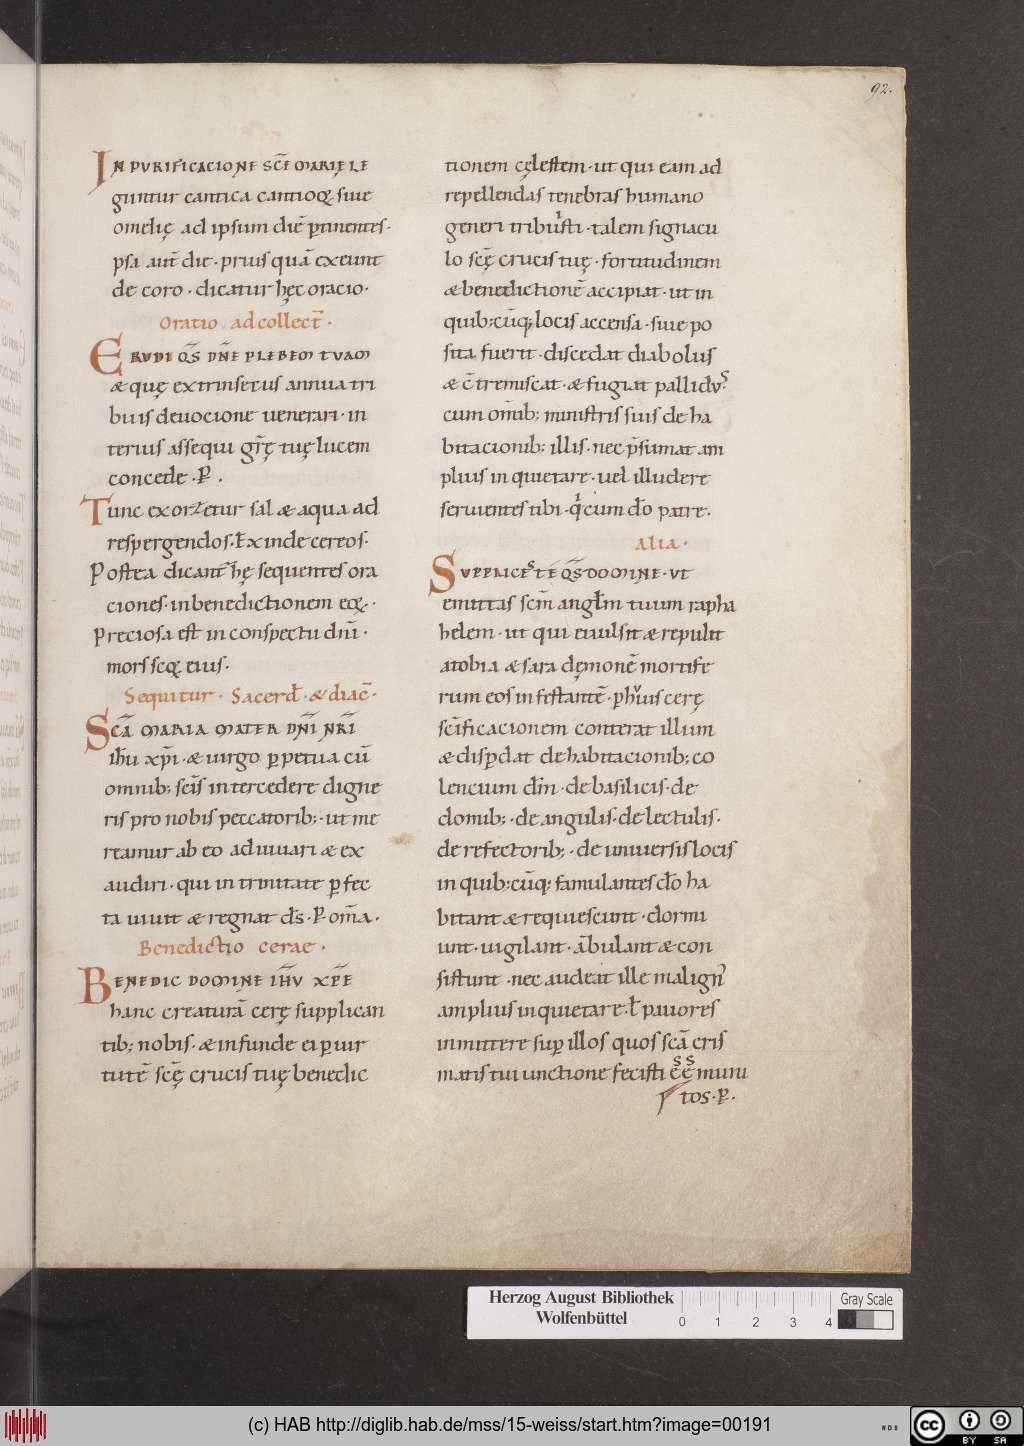 92.
IN PVRIFICACIONE SCĒ MARIĘ LE
guntur cantica cantioq; siue
omelię ad ipsum diē ꝑtinentes·
psa aūt die· prius quā exeunt
de coro · dicatur hęc oracio·
Oratio ad collect̄ ·
ERUDI QS̄ DN̄E PLEBEM TVAM
æ quę extrinsecus annua tri
buis deuocione uenerari· in
terius assequi gr̄ę tuę lucem
concede · P̲ ·
Tunc exorzetur sal æ aqua ad
respergendos· Exinde cereos·
Postea dicant̄ hę sequentes ora
ciones· inbenedictionem eoꝝ·
Preciosa est in conspectu dn̄i·
mors scoꝝ eius·
Sequitur · Sacerd̄ · æ diac̄ ·
SCĀ MARIA MATER DN̄I NR̄I
ih̄u xp̄i · æ uirgo ꝑpetua cū
omnib; scīs intercedere digne
ris pro nobis peccatorib;· ut me
reamur ab eo adiuuari æ ex
audiri· qui in trinitate ꝑfec
ta uiuit æ regnat ds̄· P̲ om̄a·
Benedictio cerae ·
BENEDIC DOMINE IH̄V XP̄E
hanc creaturā cerę supplican
tib; nobis· æ infunde ei ꝑ uir
tutē scę̄ crucis tuę benedic
tionem cęlestem· ut qui eam ad
repellendas tenebras humano
generi tribuisti· talem signacu
lo scę̄ crucis tuę· fortitudinem
æ benedictionē accipiat· ut in
quib;cūq; locis accensa· siue po
sita fuerit· discedat diabolus
æ c̄tremiscat· æ fugiat pallidus·
cum om̄ib; ministris suis de ha
bitacionib; illis· nec p̄sumat am
plius inquietare· uel illudere
seruientes tibi· qi cum do̅ patre·
Alia ·
SVPPLICES TE QS̄ DOMINE· VT
emittas scm̄ angl̄m tuum rapha
helem· ut qui euulsit æ repulit
a tobia æ sara dęmonē mortife
rum eos infestantē· ꝑ huius cerę
scīficacionem conterat illum
æ disꝑdat de habitacionib; co
lencium dm̄· de basilicis· de
domib;· de angulis· de lectulis·
de refectorib;· de uniuersis locis
in quib;cūq; famulantes do̅ ha
bitant æ requiescunt· dormi
unt· uigilant· ābulant æ con
sistunt· nec audeat ille malign'
amplius inquietare· ł pauores
inmittere suꝑ illos quos scā cris
matis tui unctione fecisti ēē muni
tos· P̲·
Herzog August Bibliothek
Wolfenbüttel
0 1 2 3 4
Gray Scale
(c) HAB http://diglib.hab.de/mss/15-weiss/start.htm?image=00191
WDB
cc
BY SA